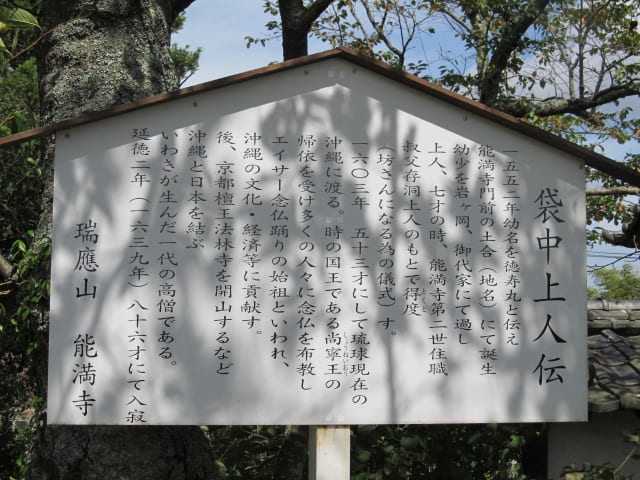 袋中上人伝
一五五二年幼名を徳寿丸と伝え
能満寺門前の土合(地名)にて誕生
幼少を岩ヶ岡、御代家にて過し
上人、七才の時、能満寺第二世住職
叔父存洞上人のもとで得度
(坊さんになる為の儀式)す。
一六〇三年 五十三才にして琉球現在の
沖縄に渡る。時の国王である尚寧王の
帰依を受け多くの人々に念仏を布教し
エイサー念仏踊りの始祖といわれ、
沖縄の文化・経済等に貢献す。
後、京都檀王法林寺を開山するなど
沖縄と日本を結ぶ
いわきが生んだ一代の高僧である。
延徳二年(一六三九年)八十六才にて入寂
瑞應山 能満寺